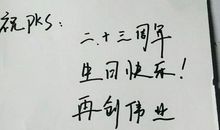 祝PKS:
二十三周年
生日快乐!
再创伟业